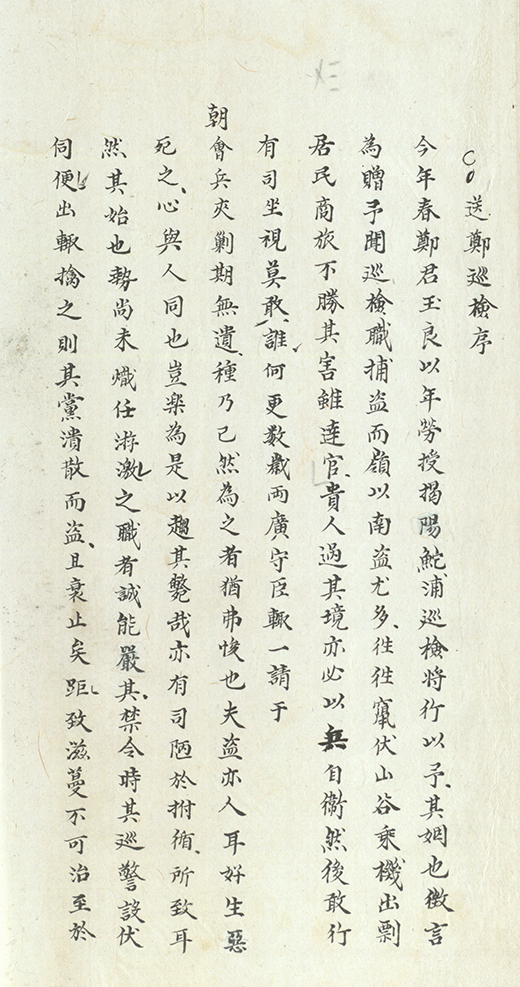 送鄭巡檢序
今年春鄭君玉良以年勞授揭陽鮀浦巡檢將行以予其姻也徵言
為贈予聞巡檢職捕盜而嶺以南盜尤多往往竄伏山谷乘機出剽
居民商旅不勝其害雖達官貴人過其境亦必以兵自衛然後敢行
有司坐視莫敢誰何更數歲兩廣守臣輒一請于
朝會兵夾剿期無遺種乃已然為之者猶弗悛也夫盜亦人耳好生惡
死之心與人同也豈樂為是以趨其斃哉亦有司陋於拊循所致耳
然其始也勢尚未熾任游激之職者誠能嚴其禁令時其巡警設伏
伺便出輒擒之則其黨潰散而盜且衰止矣距致滋蔓不可治至於